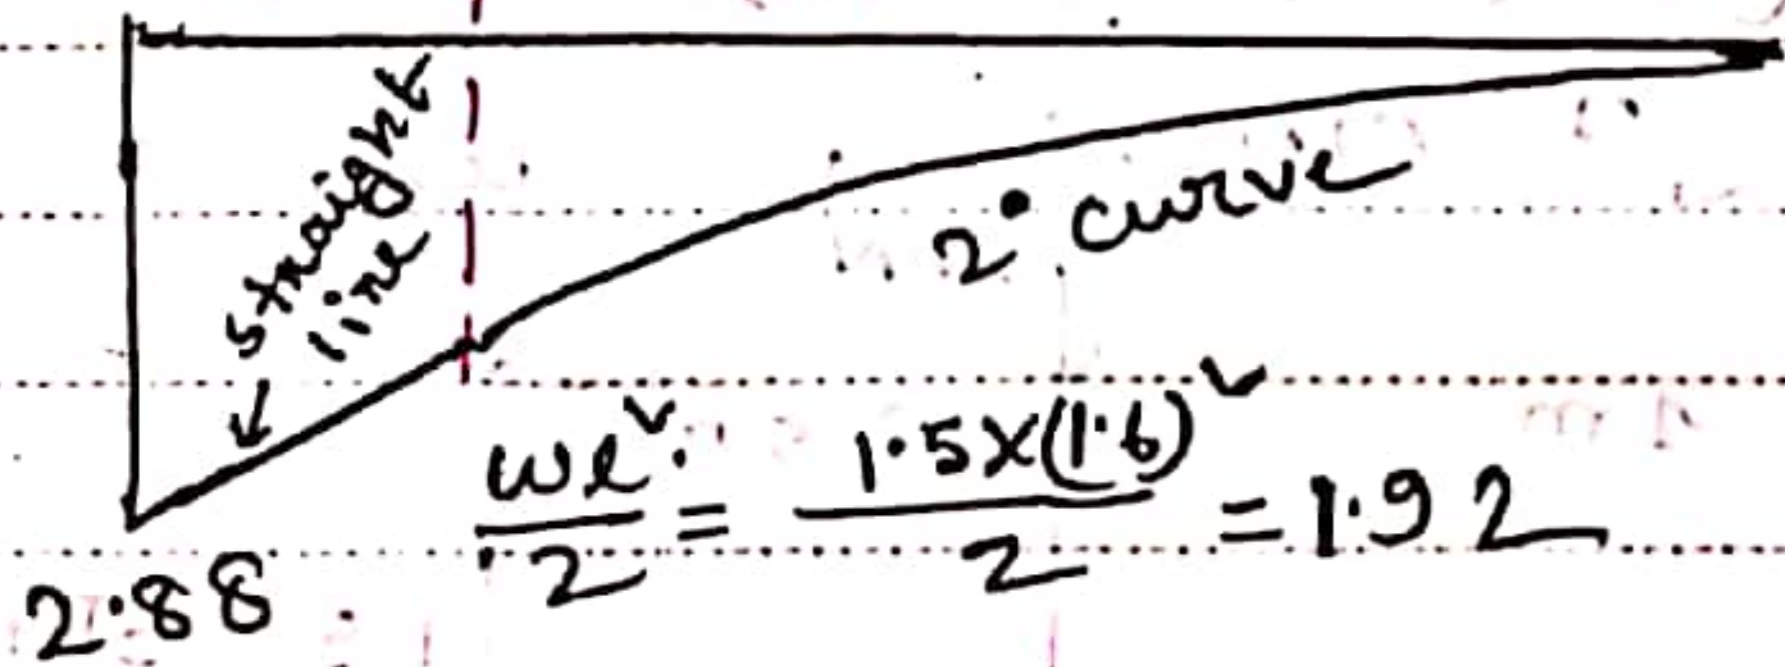 straight
line
2° curve
wl²/2 = 1.5×(1.6)²/2 = 1.92
2.88